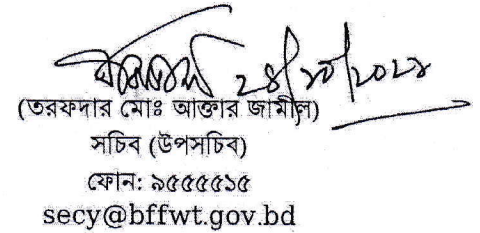 ২৪/১০/২০২১
(তরফদার মোঃ আক্তার জামীল)
সচিব (উপসচিব)
ফোন: ৯৫৫৫৫১৫
secy@bffwt.gov.bd